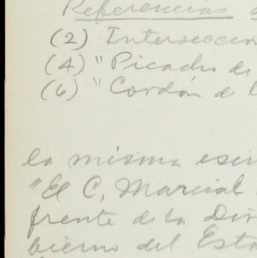 Referencias
(2) Intersección
(4) "Picacho de
(6) "Cordón de l
la misma
"El C. Marcial
frente de la Dir
bierno del Esta